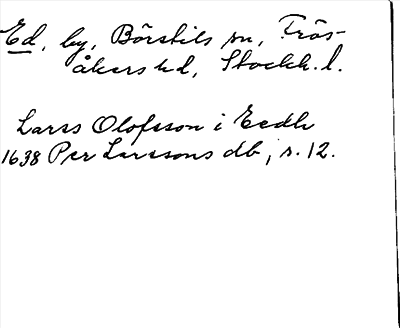 Ed, by, Börstils sn, Frös-
åkers hd, Stockh. l.
Larss Olofsson i Eedh
1638 Per Larssons db, s. 12.